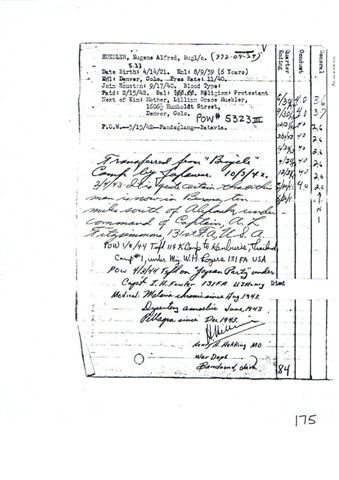 HUEBLER, Eugene Alfred, Bugl/c. (372-04-27)
5.33
Date Birth: 4/14/21. Enl: 8/9/39 (6 Years)
Enl: Denver, Colo. Prev Rate: 11/40.
Join Houston: 9/17/40. Blood Type:
Paid: 2/15/42. Bal: Religion: Protestant
Next of Kin: Mother, Lillian Grace Huebler,
1606½ Humboldt Street,
Denver, Colo.
POW# 5323 III
P.O.W.--3/15/42--Pandeglang--Batavia.
Quarter Ending Conduct General
4.0 3.6
4.0 3.7
4.0 2.6
4.0 2.6
4.0 2.6
4.0 2.6
4.0 2.6
4.0 2.6
Transferred from "Bicycle"
Camp by Japanese. 10/3/42.
3/4/43 It is quite certain that this
man is now in Burma, ten
mile south of under
command of Captain, A. L.
Fitzsimmons, 131st F.A., U.S.A.
POW 1/8/44 Tsfd 114 K Camp to Thailand
Camp #1, under Maj. W.H. Rogers 131 FA USA
POW 4/2/44 Tsfd on "Japan Party" under
Capt I. H. Fowler 131 FA US Army Died
Medical: Malaria chronic since Aug 1943.
Dysentery amoebic June, 1943.
Pellagra since Dec 1943.
Henry H. Hekking MD
War Dept
84
175